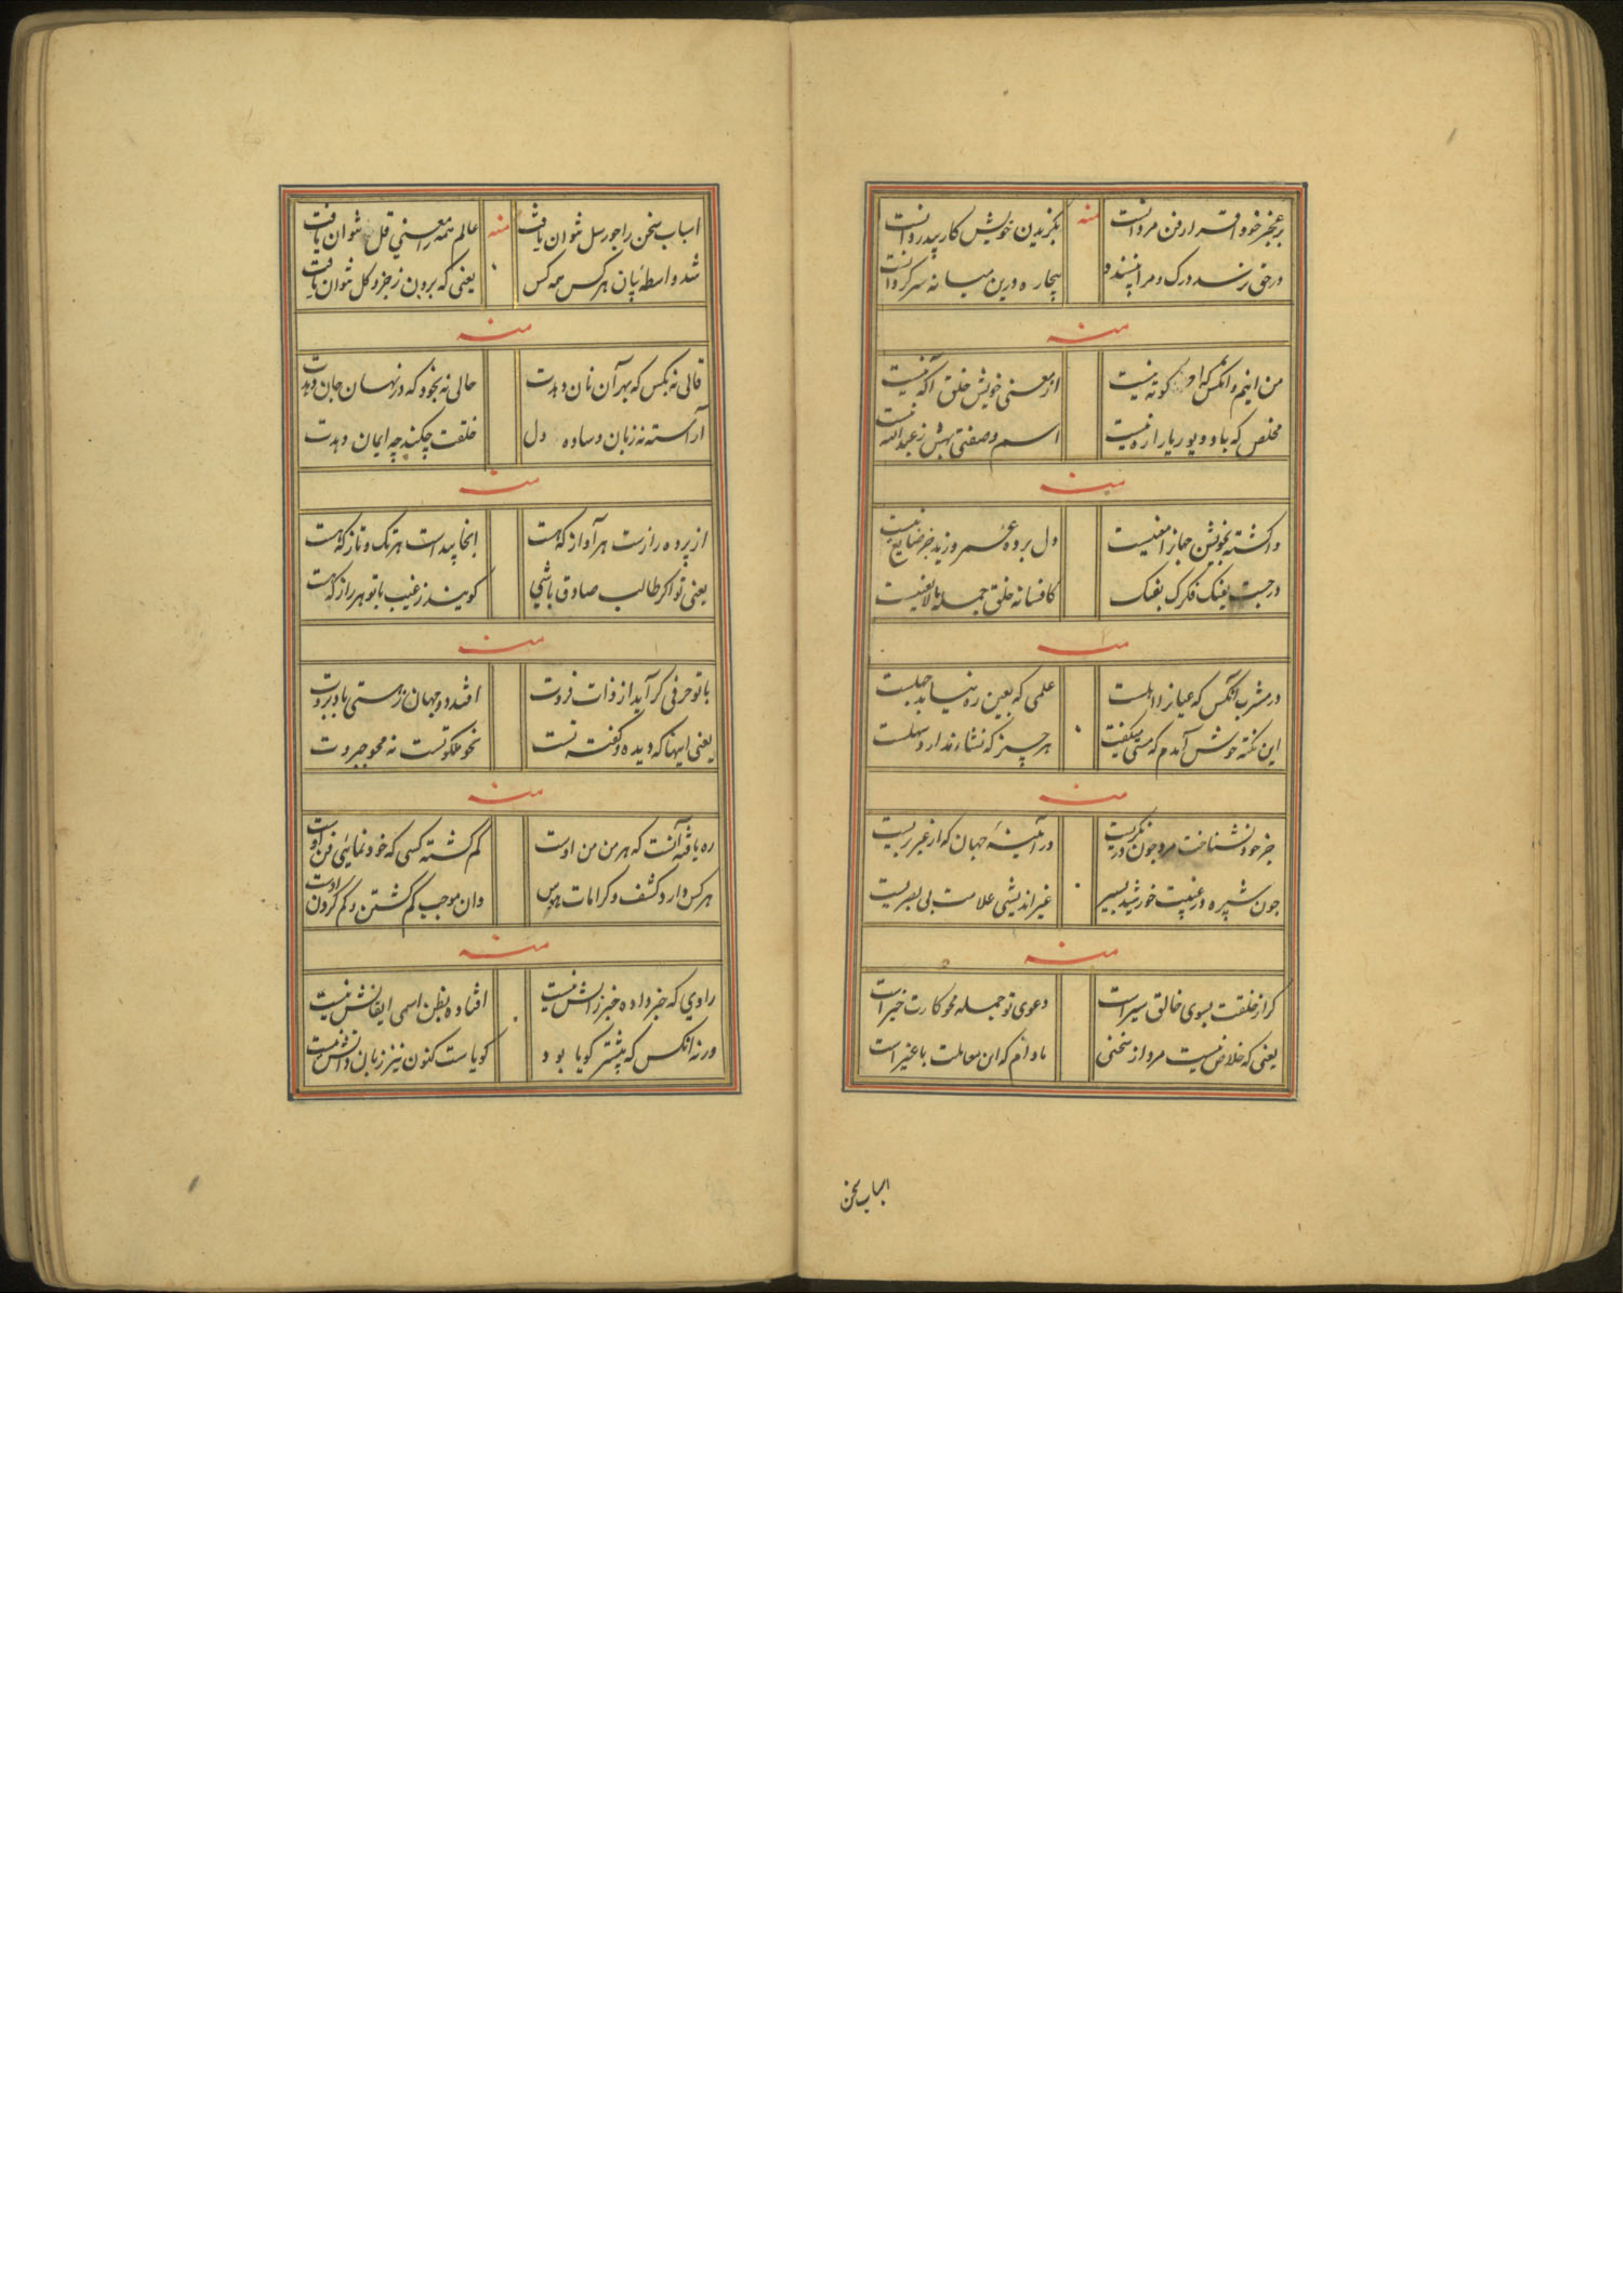 بر عجز خود اقرار فن مردانست منه بگزیدن خویش کار بیدردانست
در حق نرسد درک و مرا پسندد بیچاره درین میانه سرگردانست
منه
من اینم و آنکس که او کوته نیست از معنی خویش خلق آگه نیست
مخلص که باد و بود یا را ره نیست اسم و صفتی بهش ز عبدالله نیست
منه
واگشته بخویشتن دل برده عمرو زید جز ضایع نیست
در جست بفنک فکرک بفنک کافسانه خلق جمله
منه
در مشرب آنکس که عیان را اهلست علمی که بعین ره نیابد جهلست
این نکته خوش آمدم که مستی میگفت هر چیز که نشاء ندارد سهلست
منه
جز خود نشناخت مرد چون در نگریست در آئینهٔ جهان که از غیر بریست
چون شپره در غیبت خورشید بسیر غیر اندیشی علامت بی بصریست
منه
گر از خلقت بسوی خالق سیر است دعوی تو جمله محو کارت خیر است
یعنی که خلاص نیست مرد از سخنی مادام که این معاملت با غیر است
اسباب سخن
اسباب سخن را چو رسل نتوان یافت منه عالم همه را معنی قل نتوان یافت
شد واسطهٔ پان هر کس همه کس یعنی که برون ز جزو کل نتوان یافت
منه
قالی نه بکس که بهر آن نان دهدت حالی نه بخود که در نهان جان دهدت
آراسته نه زبان و ساده دل خلقت چکند چه ایمان دهدت
منه
از پرده رازست هر آواز که هست اینجا پیداست هر تک و تاز که هست
یعنی تو اگر طالب صادق باشی گویند ز غیب با تو هر راز که هست
منه
با تو حرفی گر آید از ذات فروت افتد دو جهان ز هستی باد بروت
یعنی اینها که دیده و گفته تست نحو ملکوتست نه محو جبروت
منه
ره یافته آنست که هر من من اوست گم گشته کسی که خودنمائی فن اوست
هر کس دارد کشف و کرامات هوس وان موجب گم گشتن و گم کردن اوست
منه
راوی که خبر داده خبر زانش نیست افتاده بظن اسمی ایقانش نیست
ورنه آنکس که پیشتر گویا بود گویاست کنون نیز زبان دانش نیست